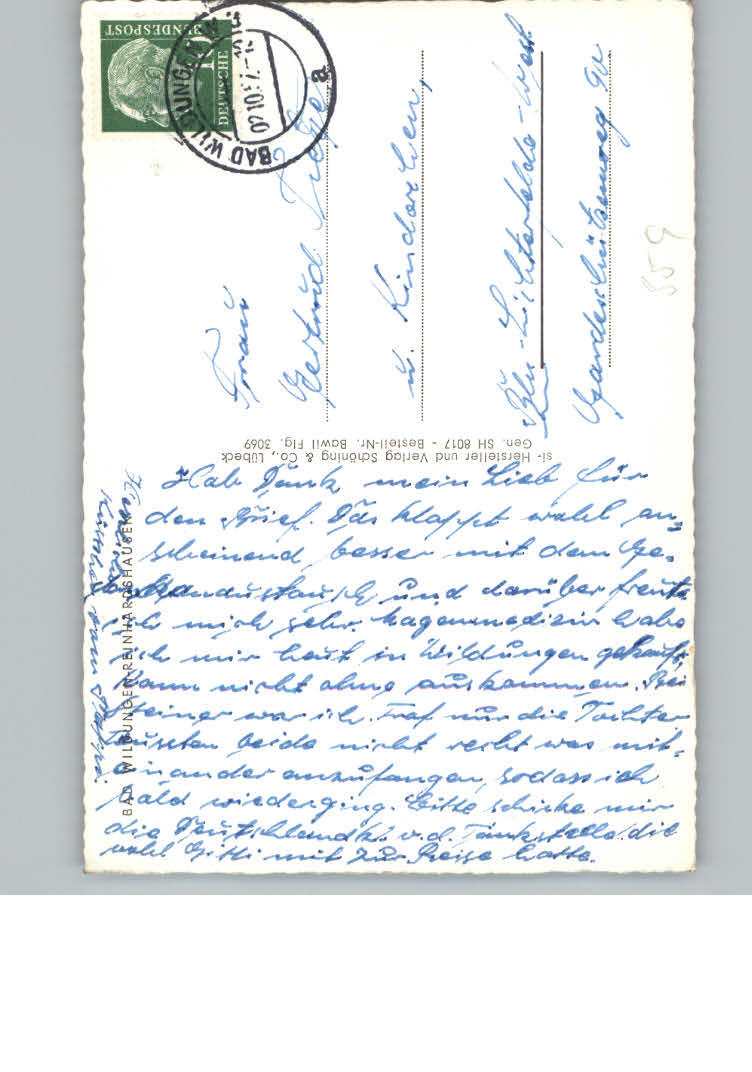 DEUTSCHE
BUNDESPOST
BAD WILDUNGEN
02.10.57
a
Frau
Gertrud
u. Kinderchen,
Bln-Lichterfelde-West
Gardeschützenweg 90
559
si- Hersteller und Verlag Schöning & Co., Lübeck
Gen. SH 8017 - Bestell-Nr. Bawil Flg. 3069
BAD WILDUNGEN-REINHARDSHAUSEN
Hab Dank mein Lieb für
den Brief. Das klappt wohl an=
scheinend besser mit dem Ge-
dankenaustausch und darüber freute
ich mich sehr. Magenmedizin habe
ich mir heut in Wildungen gekauft,
kann nicht ohne auskommen. Bei
Steiner war ich. Traf nur die Tochter
wussten beide nicht recht was mit=
einander anzufangen, sodass ich
bald wiederging. Bitte schicke mir
die Deutschlandkt. v. d. Tankstelle die
wohl Gitti mit zur Reise hatte.